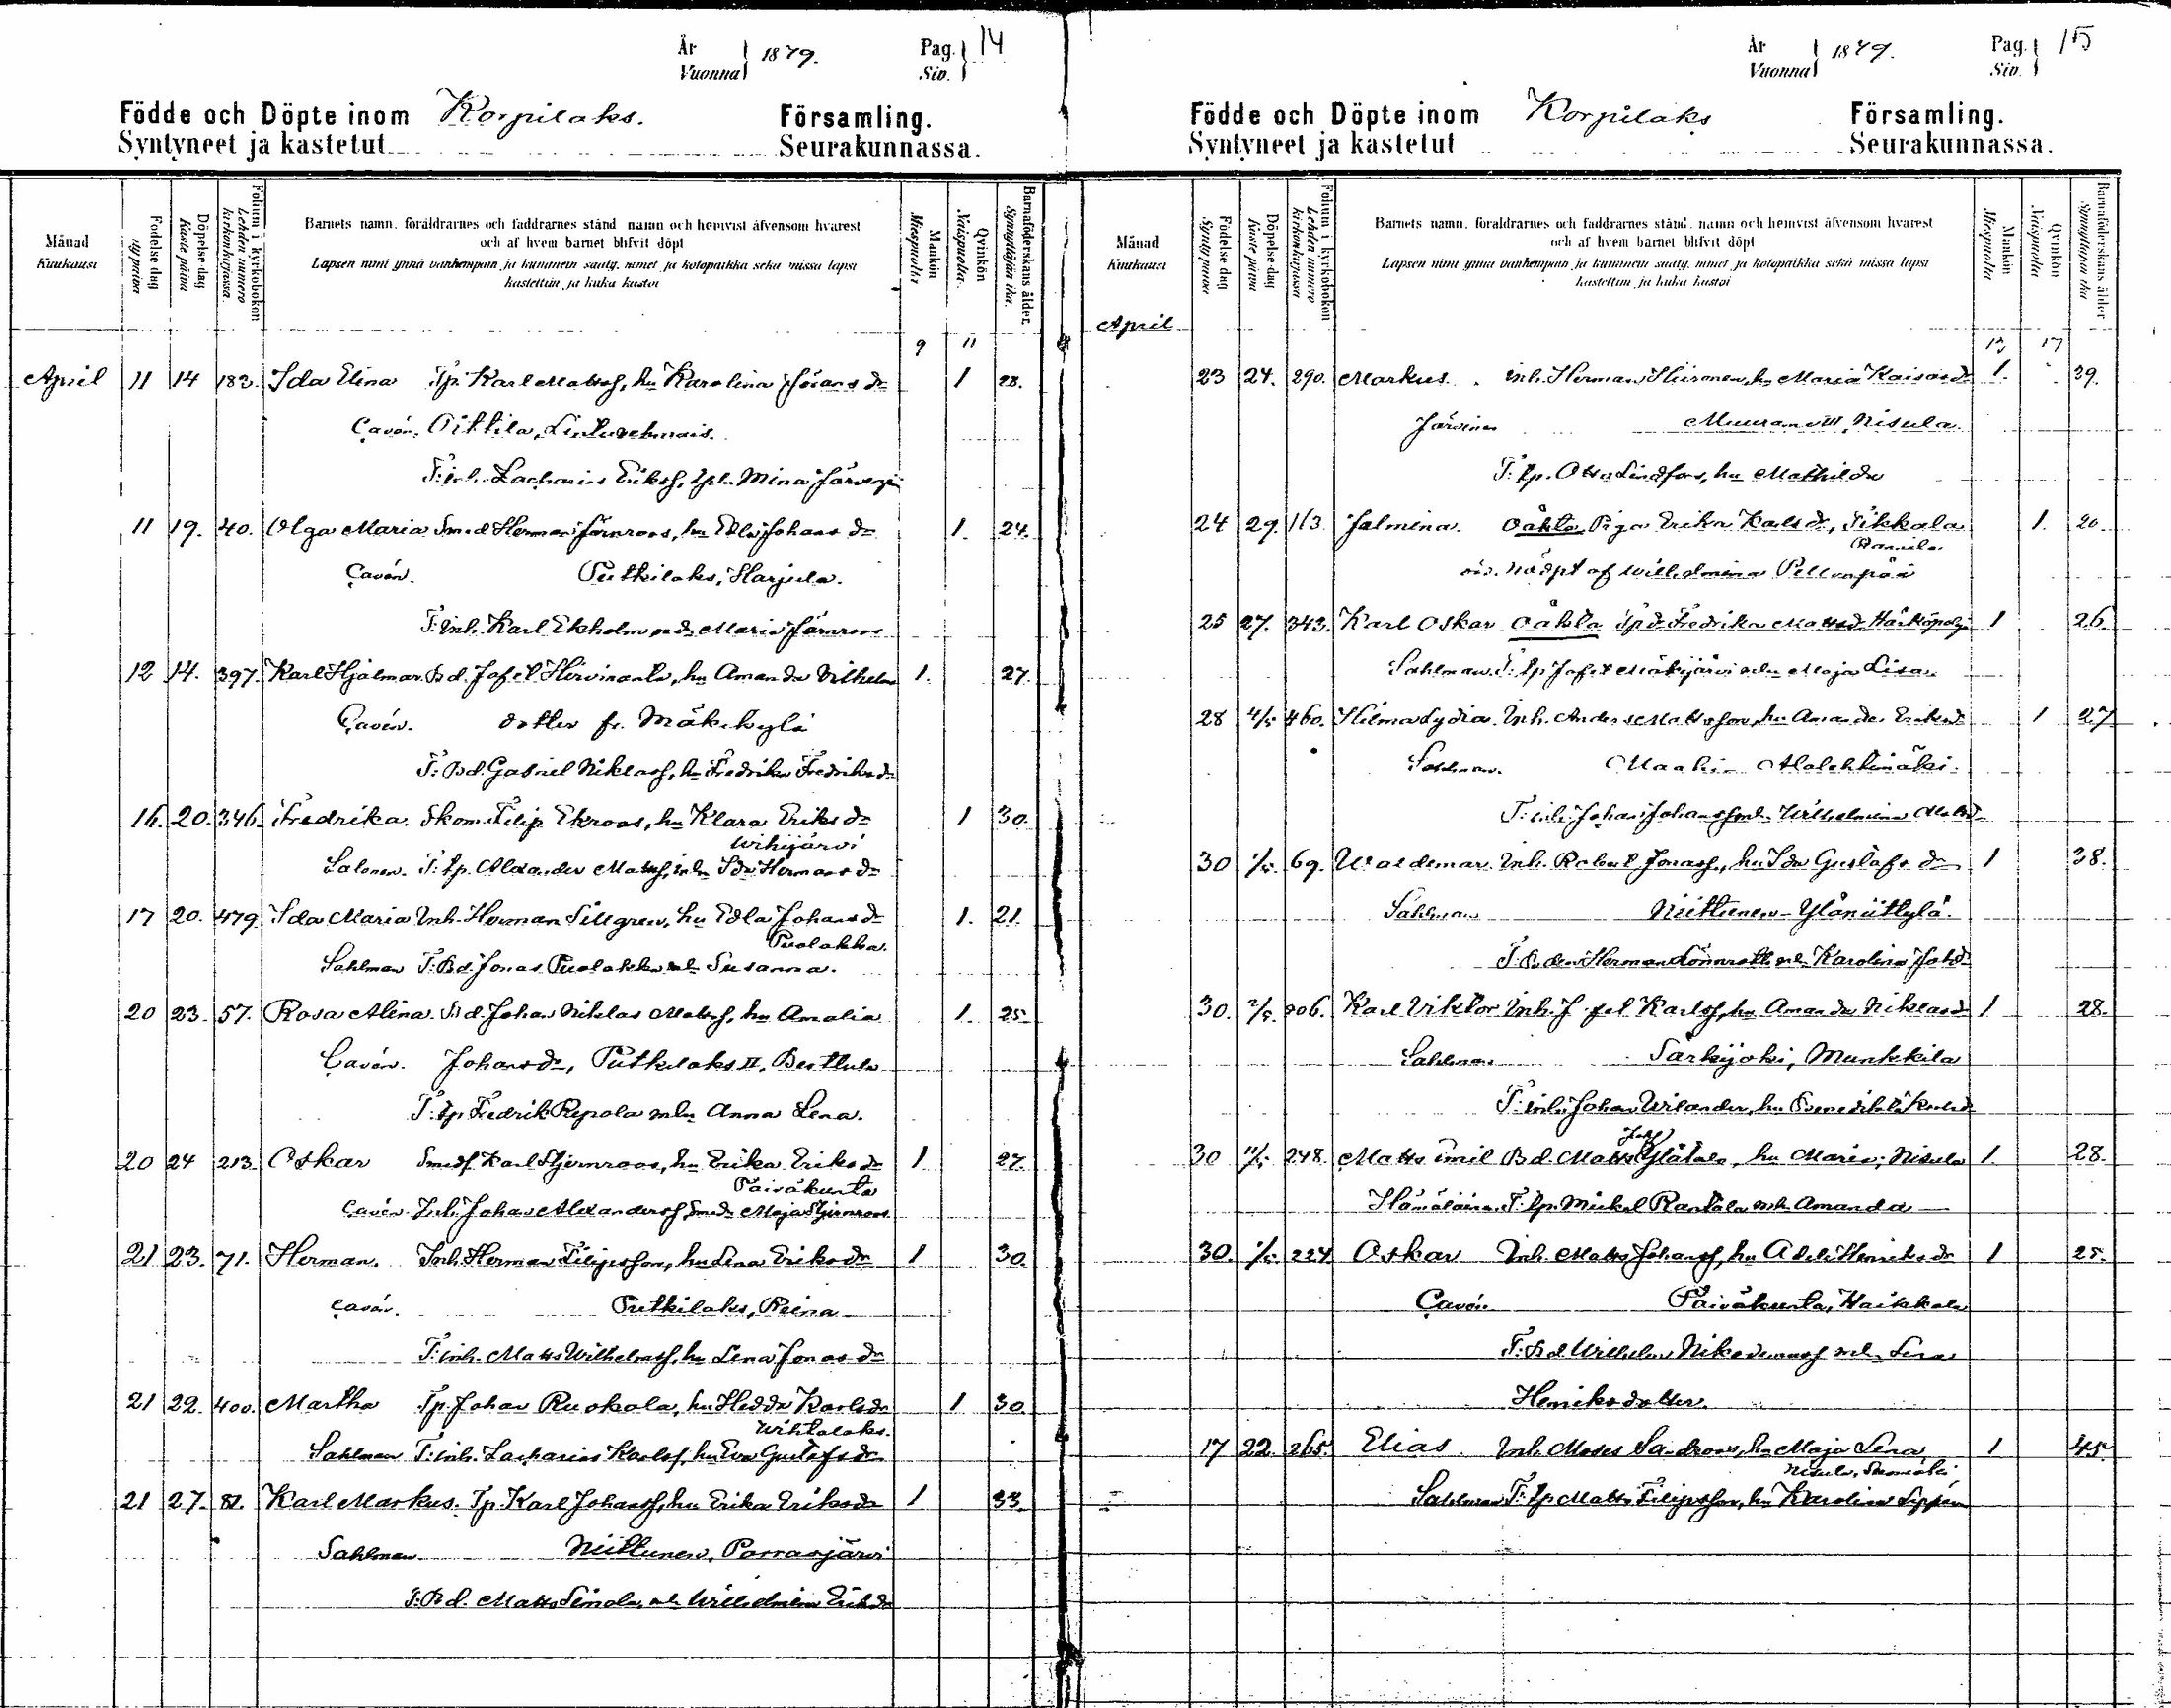 År
Vuonna 1879.
Pag.
Siv. 14
Födde och Döpte inom Korpilaks. Församling.
Syntyneet ja kastetut Seurakunnassa.
Månad
Kuukausi
Födelse dag
Döpelse dag
Kaste päivä
Folium i kyrkoboken
Lehden numero kirkonkirjassa.
Barnets namn, föräldrarnes och faddrarnes stånd namn och hemvist äfvensom hvarest
och af hvem barnet blifvit döpt
Lapsen nimi ynnä vanhempain ja kummein sääty, nimet ja kotopaikka sekä missä lapsi
kastettiin ja kuka kastoi
Mankön
Miespuolta
Qvinkön
Naispuolta.
Barnaföderskans ålder.
Synnyttäjän ikä.
9 11
April 11 14 183. Ida Elina Tp. Karl Mattsf, hu Karolina Jörans dr 1 28.
Cavén. Oittila,
T: inh. Zacharias Eriksf, Mina
11 19. 40. Olga Maria Smed Herman Järnroos, hu Edla Johans dr 1. 24.
Cavén. Putkilaks, Harjula.
T: inh. Karl Ekholm Maria Järnroos
12 14. 397. Karl Hjalmar Bd. Jafet Hirvinanta, hu Amanda Vilhelms 1. 27.
Cavén. dotter fr. Mäkikylä
T: Bd. Gabriel Niklasf, hu Fredrika Fredriks dr
16. 20. 346. Fredrika Skom. Filip Ekroos, hu Klara Eriks dr 1 30.
Wihijärvi
Salonen. T: tp. Alexander Mattsf, Ida Hermans dr
17 20. 479. Ida Maria Inh. Herman Sillgren, hu Edla Johans dr 1. 21.
Puolakka.
Sahlman T: Bd. Jonas Puolakka Susanna.
20 23. 57. Rosa Alina. Bd. Johan Niklas Mattsf, hu Amalia 1. 25.
Cavén. Johans dr, Putkilaks II, Berttula
T: tp Fredrik Repola Anna Lena.
20 24 213. Oskar Smedf. Karl Stjernroos, hu Erika Eriks dr 1 27.
Päiväkunta
Cavén Inh. Johan Alexandersf, Maja Stjernroos
21 23. 71. Herman. Inh. Herman Filipsson, hu Lena Eriks dr 1 30.
Cavén. Putkilaks, Reina
T: inh. Matts Wilhelmsf, hu Lena Jonas dr
21 22. 400. Martha Tp. Johan Ruokola, hu Hedda Karls dr 1 30.
Wihtalaks.
Sahlman T: inh. Zacharias Karlsf, hu Eva Gustafs dr
21 27. 81. Karl Markus. Tp. Karl Johansf, hu Erika Eriks dr 1 33.
Sahlman. Niittunen, Parrasjärvi
T: Bd. Matts Simola,
År
Vuonna 1879.
Pag.
Siv. 15
Födde och Döpte inom Korpilaks Församling.
Syntyneet ja kastetut Seurakunnassa.
Månad
Kuukausi
Födelse dag
Synty päivä
Döpelse dag
Kaste päivä
Folium i kyrkoboken
Lehden numero kirkonkirjassa
Barnets namn, föräldrarnes och faddrarnes stånd, namn och hemvist äfvensom hvarest
och af hvem barnet blifvit döpt
Lapsen nimi ynnä vanhempain ja kummein sääty, nimet ja kotopaikka sekä missä lapsi
kastettiin ja kuka kastoi
Mankön
Miespuolta
Qvinkön
Naispuolta
Barnaföderskans ålder
Synnyttäjän ikä
April
13 17
23 24. 290. Markus. Inh. Herman Hiironen, hu Maria Kaisasdr 1. 39.
Järvinen Nisula.
T: tp. Otto Lindfors, hu Mathilda
24 29. 113. Jalmina. oäkta Piga Erika Karls dr, Tikkala 1. 20.
nödpt af Wilhelmina
25 27. 343. Karl Oskar oäkta Fredrika Matts dr 1 26.
Sahlman. T: tp Jafet Mäkijärvi Maja Lisa.
28 4/5 460. Hilma Lydia. Inh. Anders Mattsson, hu Amanda Eriksdr 1 27
Sahlman.
T: inh. Johan Johansf Wilhelmina
30 1/5. 69. Waldemar. Inh. Robert Jonasf., hu Ida Gustafs dr 1 38.
Sahlman Niittunen - Yläniittylä.
T: Herman Lönnroth Karolina
30. 2/5. 206. Karl Viktor Inh. Jafet Karlsf, hu Amanda Niklasdr 1 28.
Sahlman Särkijoki, Munkkila
T: inh. Johan Wilander, hu
30 248. Matts Emil Bd. Matts Ylätalo, hu Maria; Nisula 1. 28.
Hämäläinen. T: tp. Mickel Rantala Amanda
30. 224 Oskar Inh. Matts Johansf, hu Adeli Henriks dr 1 25.
Cavén Päiväkunta, Haikkala
T: Bd. Wilhelm Nikodemusf Lena
Henriksdotter.
17 22. 265. Elias. Inh. Moses Sandroos, hu Maja Lena, 1 45.
Sahlman T: tp Matts Filipsson, hu Karolina